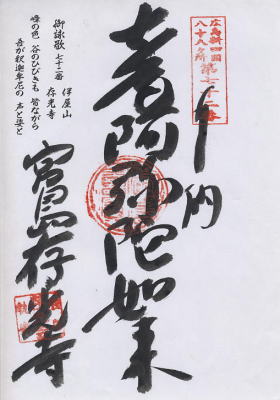 広島新四國
八十八ヶ所 第七十二番
奉納
阿弥陀如来
御詠歌 七十二番 伊屋山 存光寺
峰の色 谷のひびきも 皆ながら
吾が釈迦牟尼の 声と姿と
存光寺